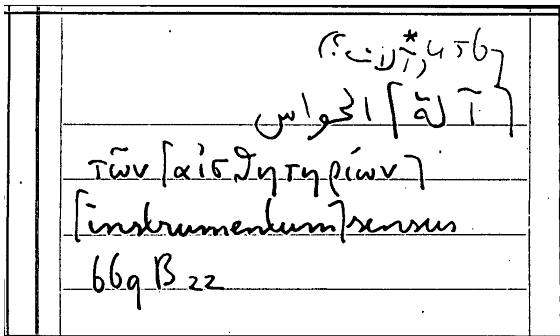 456, *آلات (؟)
[آلة] الحواس
τῶν [αἰσθητηρίων]
[instrumentum] sensus
669 B 22